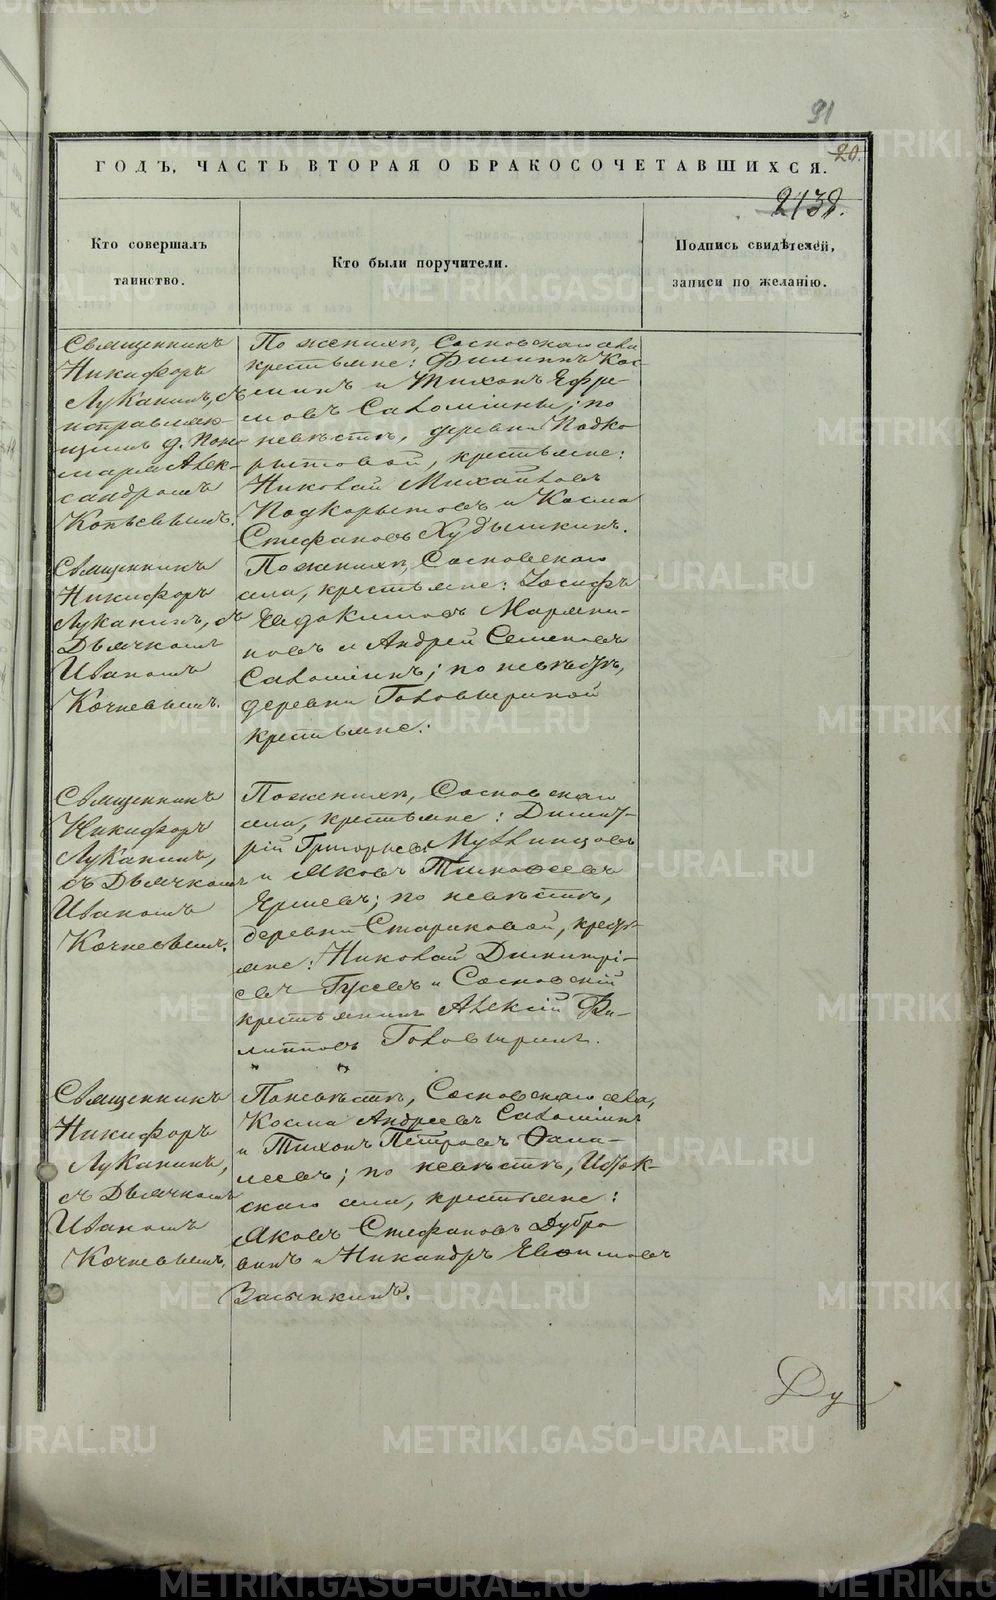 91
20.
ГОДЪ, ЧАСТЬ ВТОРАЯ О БРАКОСОЧЕТАВШИХСЯ.
2138.
Кто совершалъ
таинство.
Кто были поручители.
Подпись свидѣтелей,
записи по желанію.
Священникъ
Никифоръ
Луканинъ, съ
исправляю-
щимъ д. Поно-
маря Алек-
сандромъ
Копѣевымъ.
По женихѣ, Сосновскаго села
крестьяне: Филиппъ Кос-
минъ и Тихонъ Ефре-
мовъ Саломѣины; по
невѣстѣ, деревни Подко-
рытовой, крестьяне:
Николай Михайловъ
Подкорытовъ и Косма
Стефановъ Худышкинъ.
Священникъ
Никифоръ
Луканинъ, съ
Дьячкомъ
Иваномъ
Кочневымъ.
По женихѣ, Сосновскаго
села, крестьяне: Іосифъ
Евдокимовъ
и Андрей Семеновъ
Саломѣинъ; по невѣстѣ,
деревни Головыриной
крестьяне:
Священникъ
Никифоръ
Луканинъ,
съ Дьячкомъ
Иваномъ
Кочневымъ.
По женихѣ, Сосновскаго
села, крестьяне: Димит-
рій Григорьевъ
и Яковъ Тимофеевъ
Ершевъ; по невѣстѣ,
деревни Стариковой, кресть-
яне: Николай Димитрі-
евъ Гусевъ и Сосновскій
крестьянинъ Алексій Фи-
липповъ Головыринъ.
Священникъ
Никифоръ
Луканинъ,
съ Дьячкомъ
Иваномъ
Кочневымъ.
По невѣстѣ, Сосновскаго села,
Косма Андреевъ Саломѣинъ
и Тихонъ Петровъ Ѳала-
леевъ; по невѣстѣ,
скаго села, крестьяне:
Яковъ Стефановъ Дубро-
винъ и Никандръ Евѳимовъ
Засыпкинъ.
Ду
METRIKI.GASO-URAL.RU